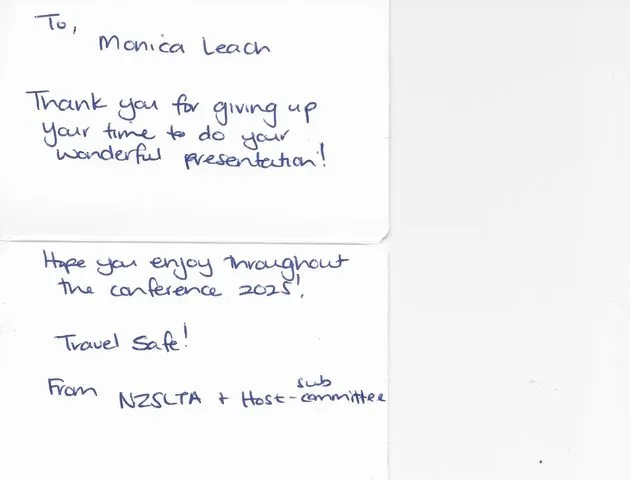 To,
Monica Leach
Thank you for giving up
your time to do your
wonderful presentation!
Hope you enjoy throughout
the conference 2025!
Travel Safe!
From NZSLTA + Host-sub committee